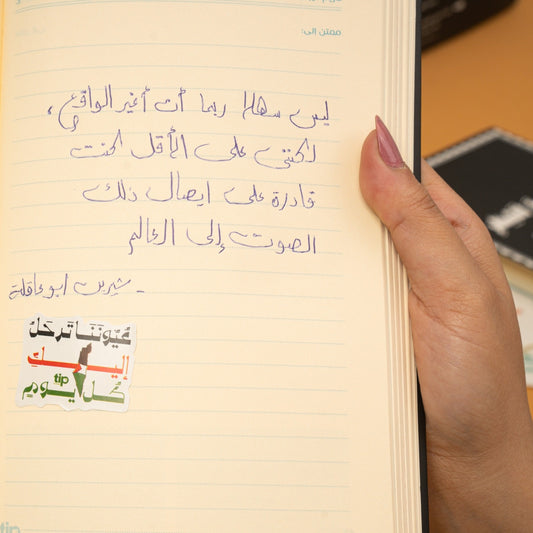 ممتن إلى:
ليس سهلا ربما أن أغير الواقع،
لكنني على الأقل كنت
قادرة على ايصال ذلك
الصوت إلى العالم
- شيرين ابو عاقلة
عُيُونُنَا تَرحَلُ
إليكِ
tip
كُل يوم
tip